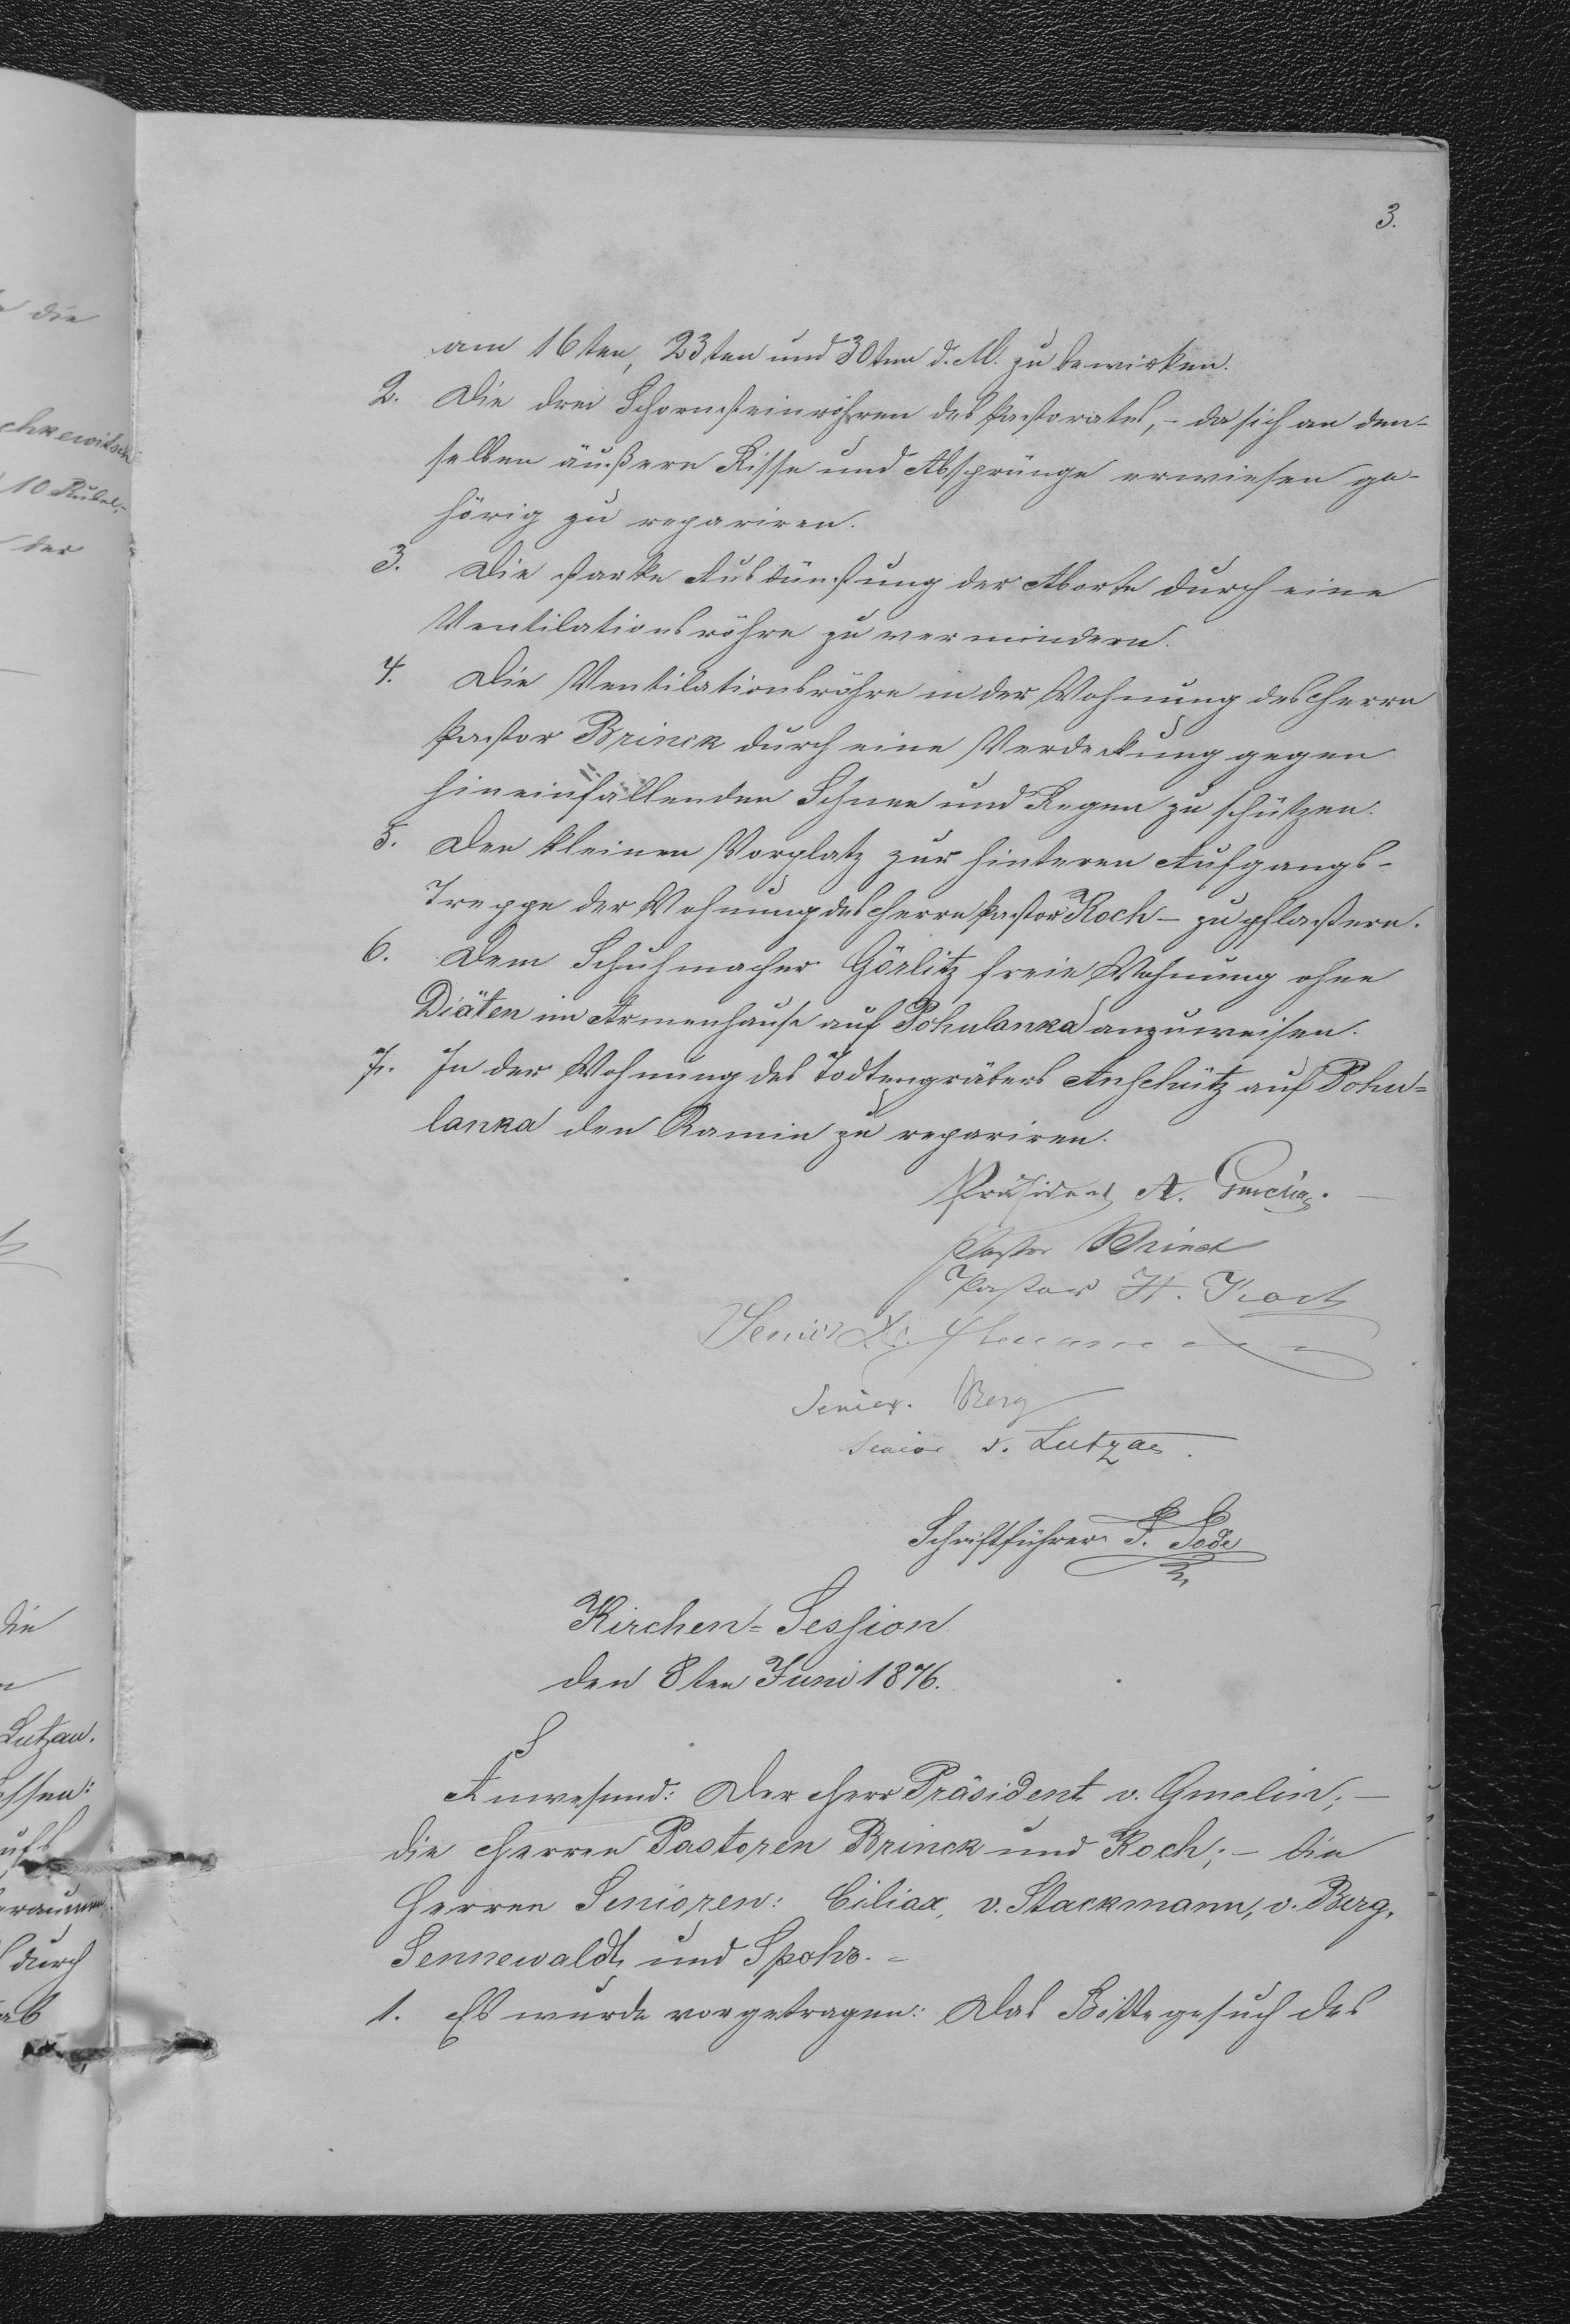 3.
am 16ten, 23ten und 30ten d. M. zu bewirken.
2. Die drei Schornsteinröhren des Pastorates, – da sich an den-
selben äußere Risse und Absprünge erwiesen ge-
hörig zu repariren.
3. Die starke Ausdünstung der Aborte durch eine
Ventilationsröhre zu vermindern.
4. Die Ventilationsröhre in der Wohnung des Herrn
Pastor Brinck durch eine Verdeckung gegen
hineinfallenden Schnee und Regen zu schützen.
5. Den kleinen Vorplatz zur hinteren Aufgangs-
Treppe der Wohnung des Herrn Pastor Koch – zu pflastern.
6. Dem Schuhmacher Görlitz freie Wohnung ohne
Diäten im Armenhause auf Pohulanka anzuweisen.
7. In der Wohnung des Todtengräbers Anschütz auf Pohu=
lanka den Kamin zu repariren.
Präsident A. Gmelin. –
Pastor Brinck
Pastor H. Koch
Senior
Senior. Berg
Senior v. Lutzau.
Schriftführer
Kirchen=Session
den 8ten Juni 1876.
Anwesend: Der Herr Präsident v. Gmelin; –
die Herren Pastoren Brinck und Koch; – die
Herren Senioren: Ciliax, v. Stackmann, v. Berg,
Sennewaldt und Spohr. –
1. Es wurde vorgetragen: Das Bittegesuch des
die
chkewitsch
10 Rubel,
der
die
Lutzau.
durch